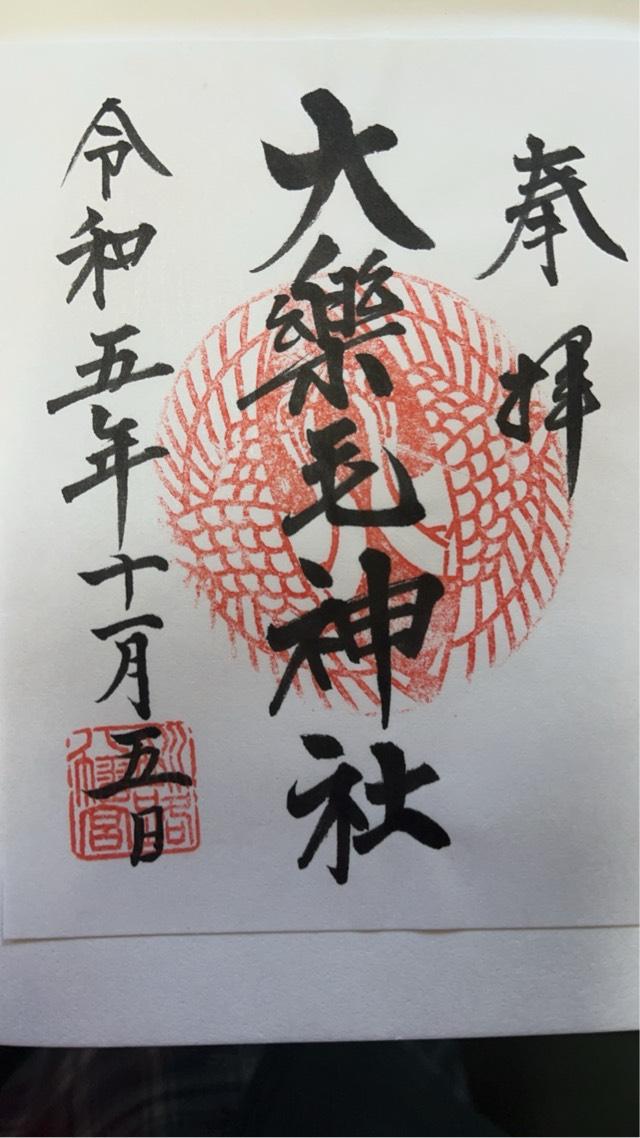 奉拝
大樂毛神社
令和五年十一月五日